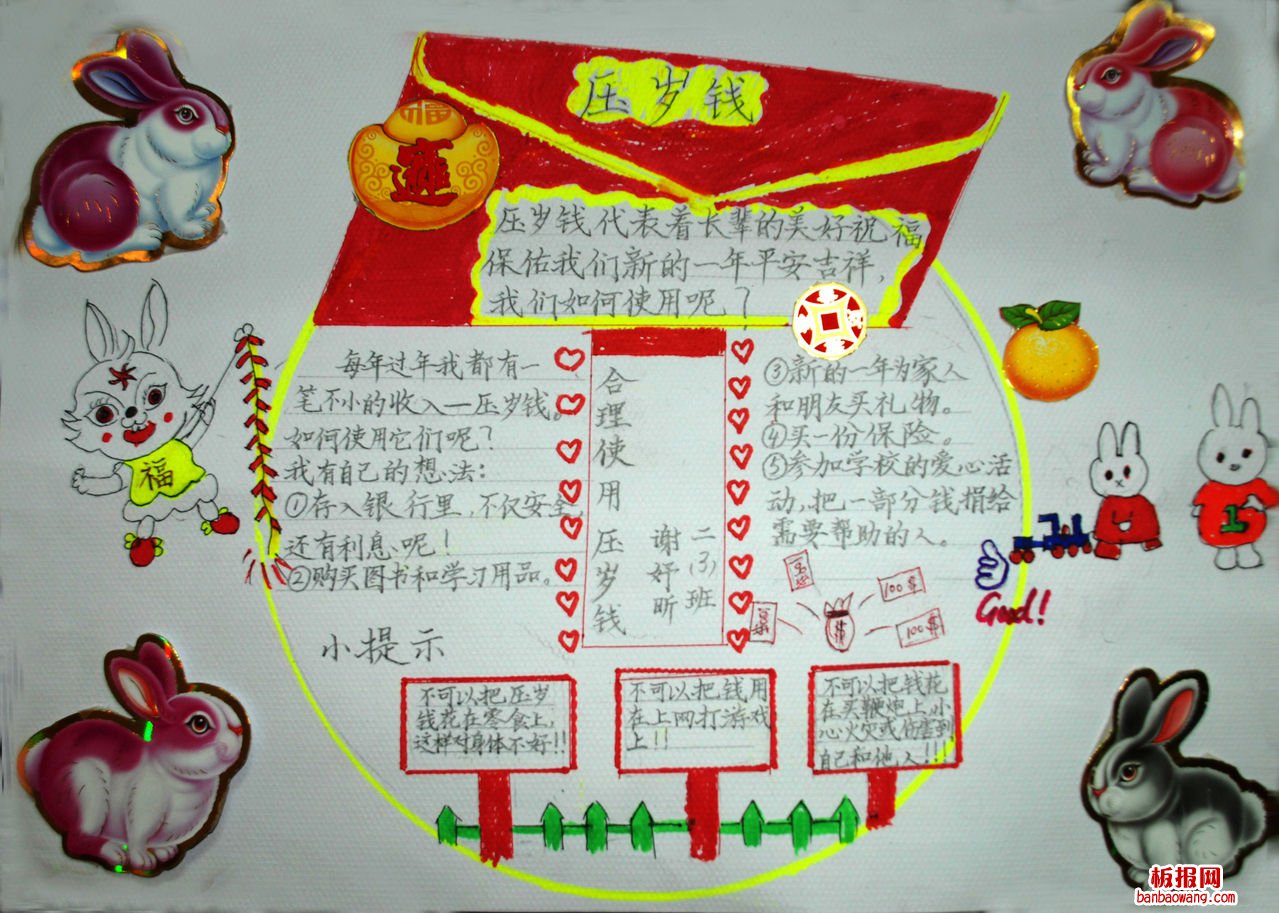 压岁钱
福
压岁钱代表着长辈的美好祝福
保佑我们新的一年平安吉祥，
我们如何使用呢？
每年过年我都有一
笔不小的收入—压岁钱。
如何使用它们呢？
我有自己的想法：
①存入银行里，不仅安全，
还有利息呢！
②购买图书和学习用品。
合理使用压岁钱
二(3)班
谢妤昕
③新的一年为家人
和朋友买礼物。
④买一份保险。
⑤参加学校的爱心活
动，把一部分钱捐给
需要帮助的人。
福
100$
100$
$
Good!
1
小提示
不可以把压岁
钱花在零食上，
这样对身体不好!!
不可以把钱用
在上网打游戏
上!!
不可以把钱花
在买鞭炮上，小
心火灾或伤害到
自己和他人!!!
板报网
banbaowang.com